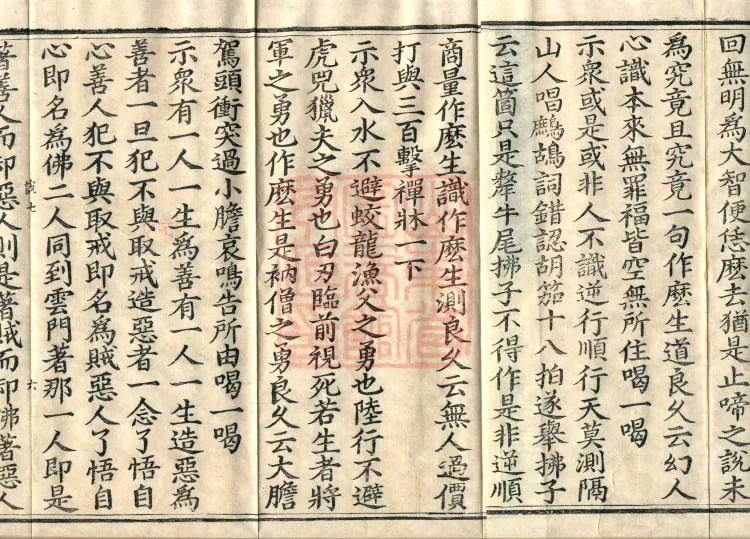 回無明為大智便恁麼去猶是止啼之說未
為究竟且究竟一句作麼生道良久云幻人
心識本來無罪福皆空無所住喝一喝
示眾或是或非人不識逆行順行天莫測隔
山人唱鷓鴣詞錯認胡笳十八拍遂舉拂子
云這箇只是犛牛尾拂子不得作是非逆順
商量作麼生識作麼生測良久云無人過價
打與三百擊禪牀一下
示眾入水不避蛟龍漁父之勇也陸行不避
虎兕獵夫之勇也白刃臨前視死若生者將
軍之勇也作麼生是衲僧之勇良久云大膽
駕頭衝突過小膽哀鳴告所由喝一喝
示眾有一人一生為善有一人一生造惡為
善者一旦犯不與取戒造惡者一念了悟自
心善人犯不與取戒即名為賊惡人了悟自
心即名為佛二人同到雲門著那一人即是
六
著善人而却惡人則是著賊而却佛著惡人